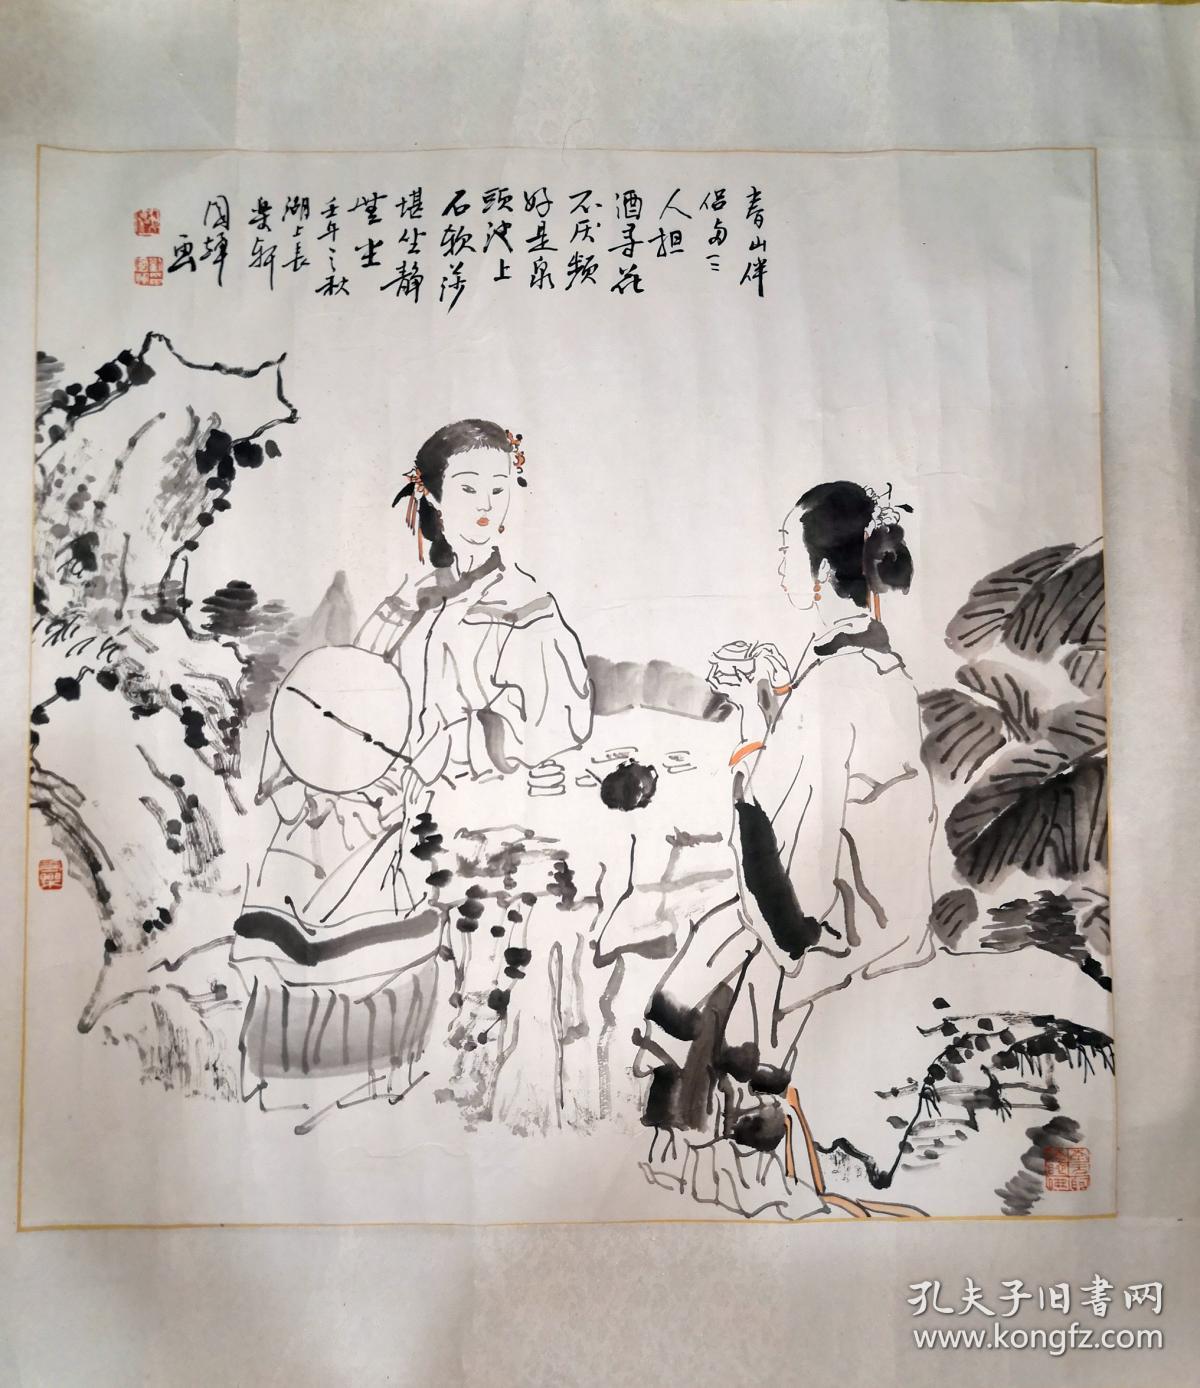 春山伴
侣两三
人担
酒寻花
不厌频
好是泉
頭池上
石软莎
堪坐静
無尘
壬年之秋
湖上長
楽軒
国輝
画
孔夫子旧書网
www.kongfz.com